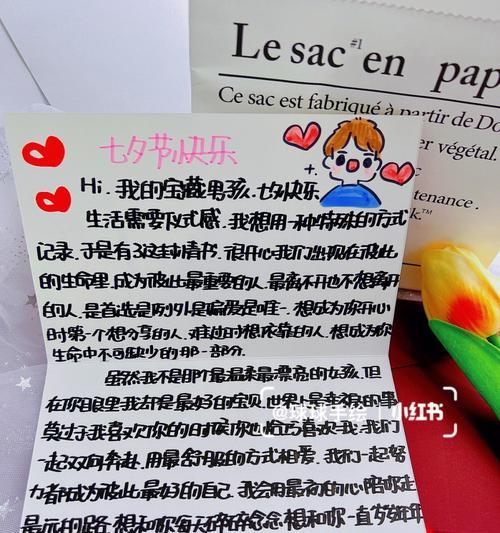 Le sac en pap
#1
Ce sac est fabriqué à partir de Do
er végétal.
ntenance.
k.™
七夕节快乐
Hi. 我的宝藏男孩.七夕快乐
生活需要仪式感.我想用一种特殊的方式
记录.于是有了这封情书.很开心我们出现在彼此
的生命里.成为彼此最重要的人.最离不开也不想离开
的人.是首选是例外是偏爱是唯一.想成为你开心
时第一个想分享的人.难过时想依靠的人.想成为你
生命中不可缺少的那一部分.
虽然我不是那个最温柔最漂亮的女孩.但
在你眼里我却是最好的宝贝.世界上最幸福的事
莫过于我喜欢你的时候你也恰巧喜欢我.我们
一起双向奔赴.用最舒服的方式相爱.我们一起努
力都成为彼此最好的自己.我会用最初的心陪你走
最远的路.想和你每天碎碎念念.想和你一直岁岁年年
@球球手绘 | 小红书